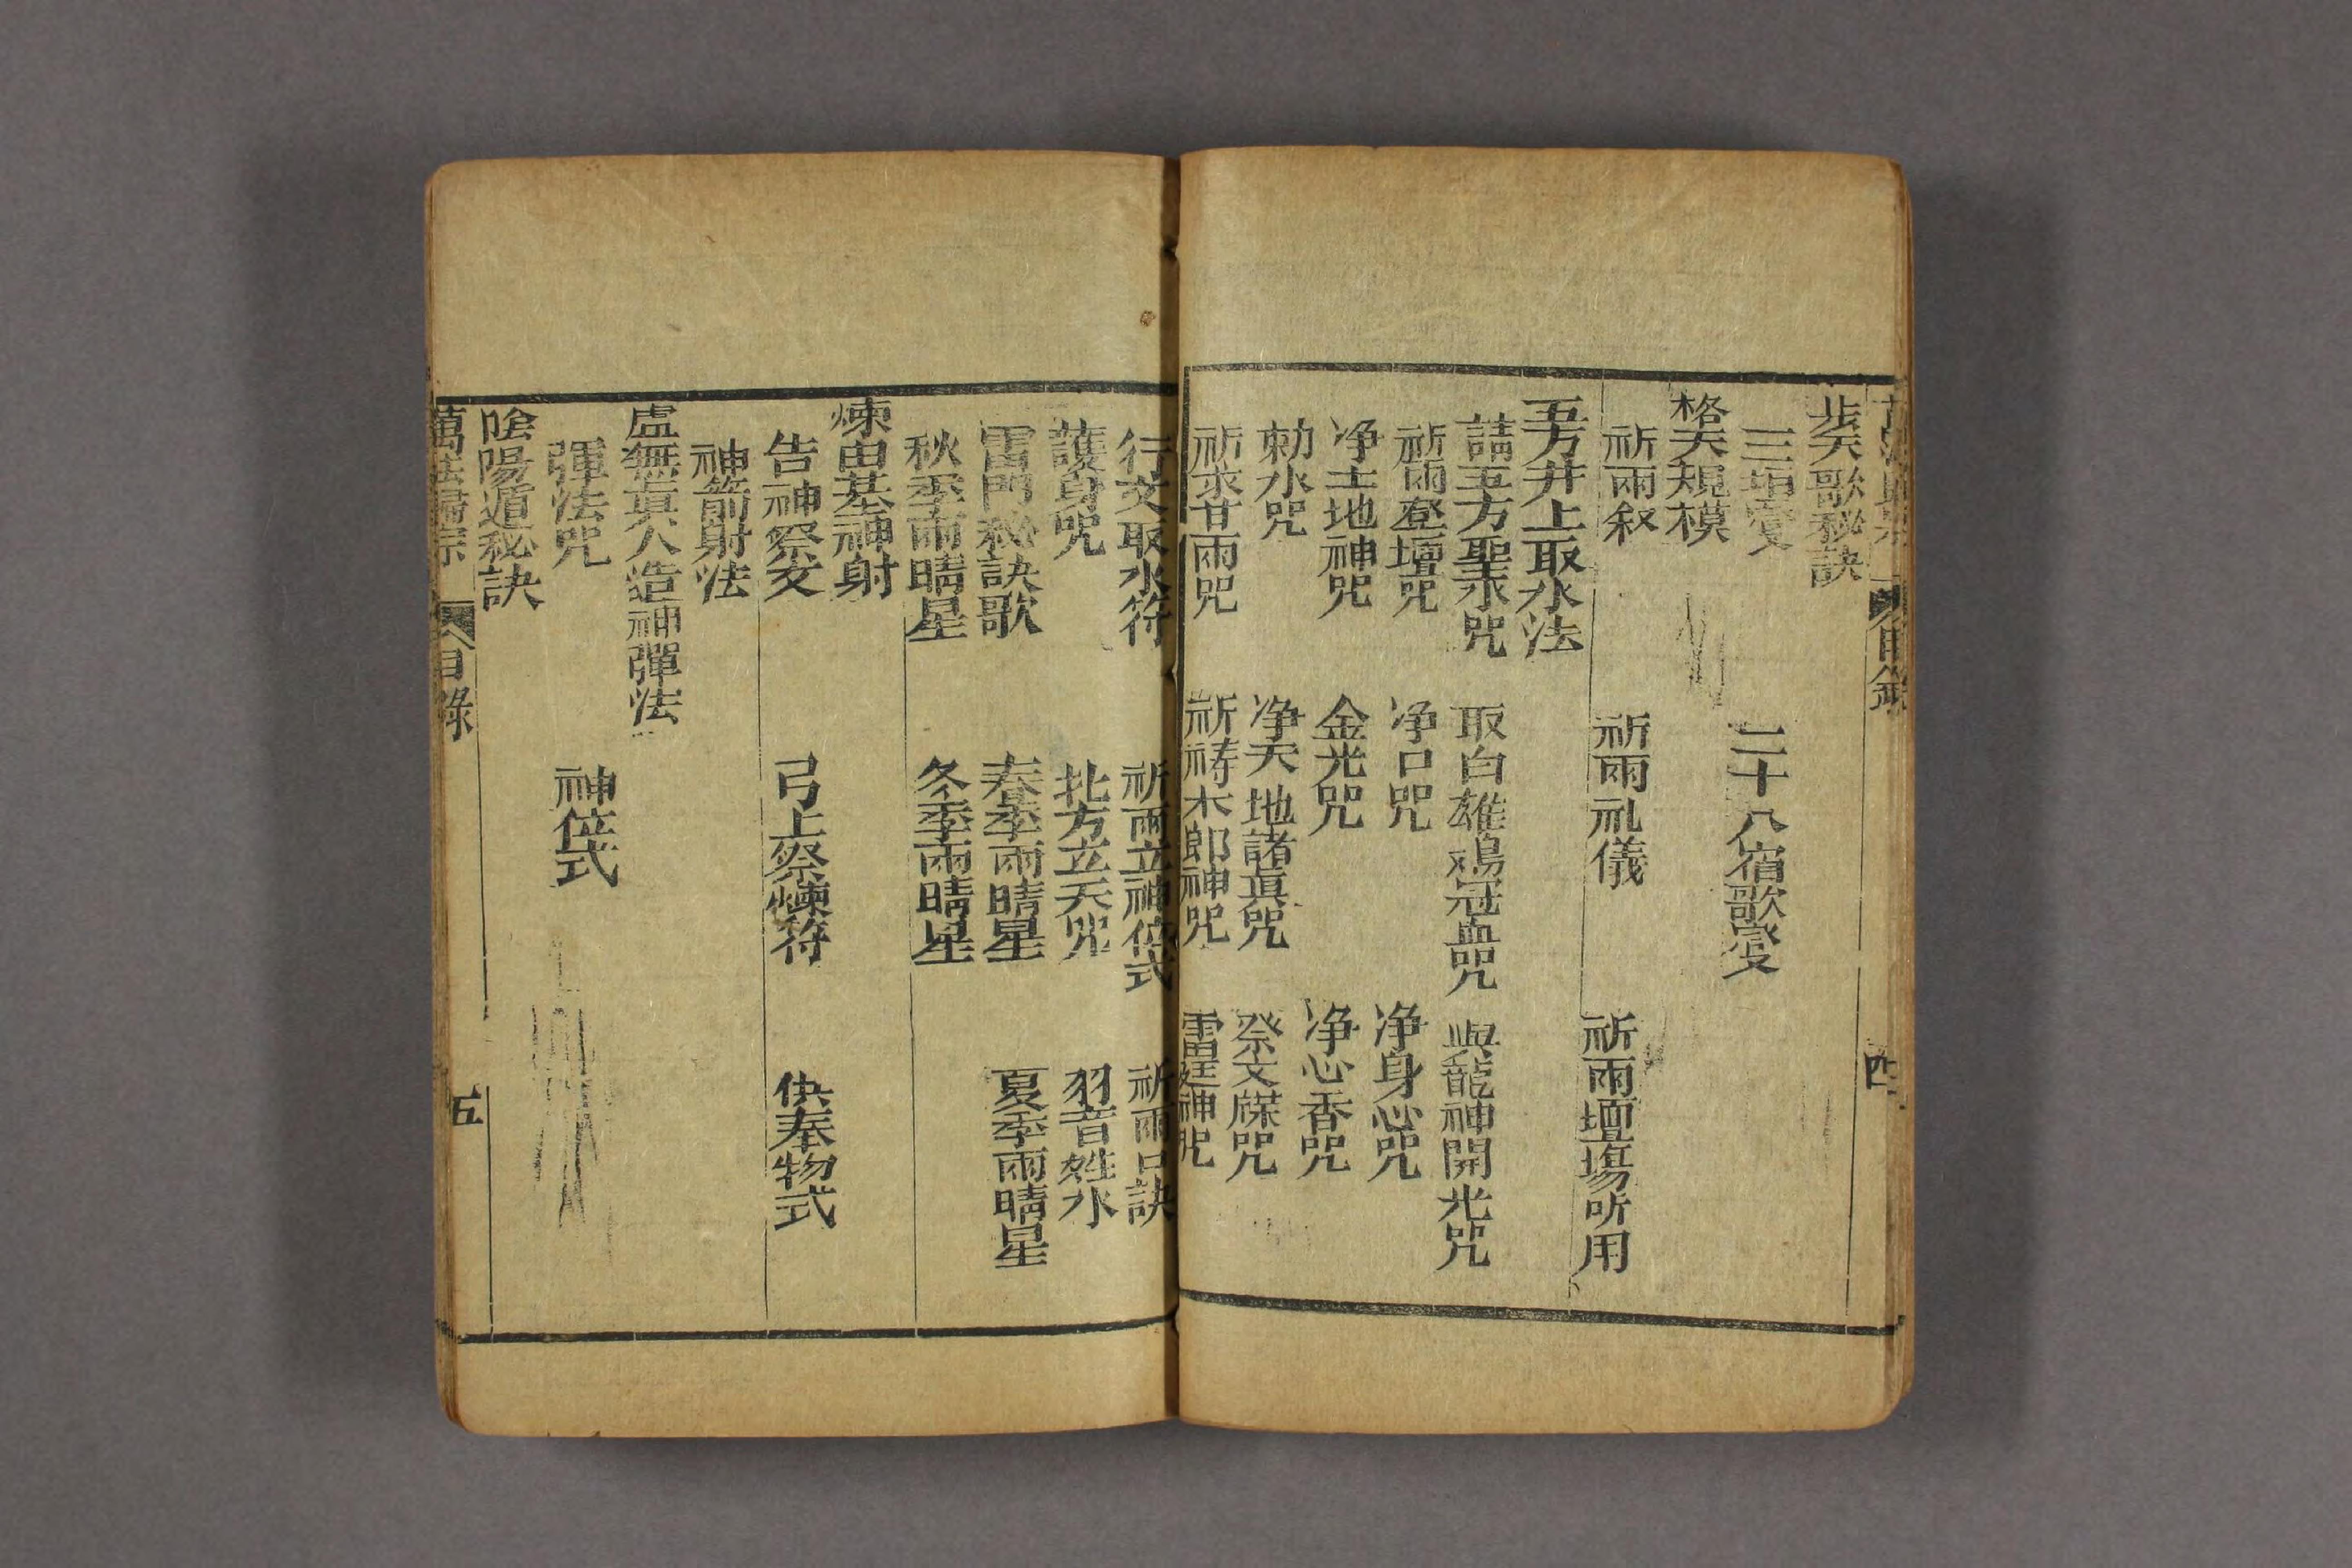 目錄
四
步天歌秘訣
三垣
二十八宿歌
格天規模
祈雨叙
祈雨礼儀
祈雨壇場所用
五方井上取水法
請五方聖水咒
取白雄鴂冠血咒
與龍神開光咒
祈雨登壇咒
净口咒
净身心咒
净土地神咒
金光咒
净心香咒
勅水咒
净天地諸眞咒
祭文牒咒
祈求甘雨咒
祈祷木郎神咒
雷霆神咒
行文取水符
祈雨立神位式
祈雨口訣
護身咒
北方立天咒
羽音姓水
雷門秘訣歌
春季雨晴星
夏季雨晴星
秋季雨晴星
冬季雨晴星
煉由基神射
告神祭文
弓上祭煉符
供奉物式
神箭射法
盧無眞人造神彈法
彈法咒
神位式
陰陽遁秘訣
萬法歸宗
目錄
五